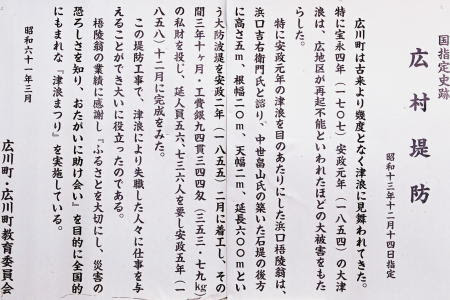 国指定史跡
広村堤防
昭和十三年十二月十四日指定
広川町は古来より幾度となく津浪に見舞われてきた。
特に宝永四年(一七〇七)安政元年(一八五四)の大津
浪は、広地区が再起不能といわれたほどの大被害をもた
らした。
特に安政元年の津浪を目のあたりにした浜口梧陵翁は、
浜口吉右衛門氏と諮り、中世畠山氏の築いた石堤の後方
に高さ五m、根幅二〇m、天幅二m、延長六〇〇mとい
う大防波堤を安政二年(一八五五)二月に着工し、その
間三年十ヶ月・工費銀九四貫三四四匁(三五三・七九㎏)
の私財を投じ、延人員五六、七三六人を要し安政五年(一
八五八)十二月に完成をみた。
この堤防工事で、津浪により失職した人々に仕事を与
えることができ大いに役立ったのである。
梧陵翁の業績に感謝し『ふるさとを大切にし、災害の
恐ろしさを知り、おたがいに助け会い』を目的に全国的
にもまれな『津浪まつり』を実施している。
昭和六十一年三月
広川町・広川町教育委員会